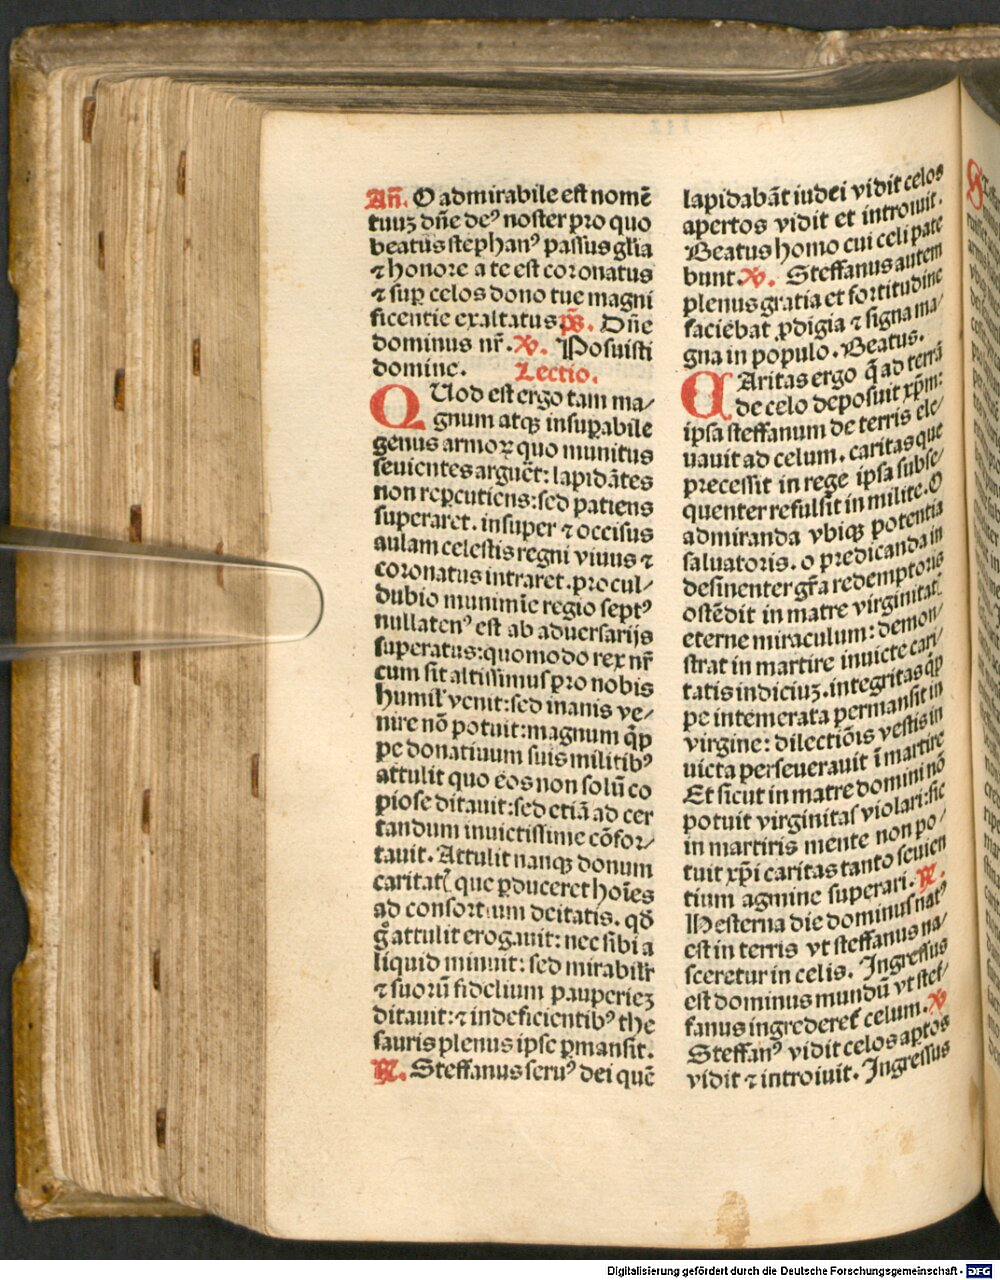 Añ. O admirabile est nomē
tuuꝫ dñe deꝰ noster pro quo
beatus stephanꝰ passus gl̃ia
⁊ honore a te est coronatus
⁊ suꝑ celos dono tue magni
ficentie exaltatus. p̄s. Dñe
dominus nr̄. ℣. Posuisti
domine. Lectio.
QUod est ergo tam ma/
gnum atqꝫ insuꝑabile
genus armoꝝ quo munitus
seuientes arguēt: lapidātes
non reꝑcutiens: sed patiens
superaret. insuper ⁊ occisus
aulam celestis regni viuus ⁊
coronatus intraret. procul/
dubio munimīe regio septꝰ
nullatenꝰ est ab aduersarijs
superatus: quomodo rex nr̄
cum sit altissimus pro nobis
humil̓ venit: sed inanis ve/
nire nō potuit: magnum q̄ꝑ
pe donatiuum suis militibꝰ
attulit quo eos non solū co
piose ditauit: sed etiā ad cer
tandum inuictissime cōfor/
tauit. Attulit nanqꝫ donum
caritatꝭ que ꝑduceret hoīes
ad consortium deitatis. qđ
g̊ attulit erogauit: nec sibi a
liquid minuit: sed mirabilr̄
⁊ suorū fidelium pauperieꝫ
ditauit: ⁊ indeficientibꝰ the
sauris plenus ipse ꝑmansit.
℟. Steffanus seruꝰ dei quē
lapidabāt iudei vidit celos
apertos vidit et introiuit.
Beatus homo cui celi pate
bunt. ℣. Steffanus autem
plenus gratia et fortitudine
faciebat ꝓdigia ⁊ signa ma/
gna in populo. Beatus.
CAritas ergo q̄ ad terrā
de celo deposuit xp̄m:
ipsa steffanum de terris ele/
uauit ad celum. caritas que
precessit in rege ipsa subse/
quenter refulsit in milite. O
admiranda vbiqꝫ potentia
saluatoris. o predicanda in
desinenter gr̄a redemptoris
ostēdit in matre virginitatꝭ
eterne miraculum: demon/
strat in martire inuicte cari/
tatis indiciuꝫ. integritas q̄ꝑ
pe intemerata permansit in
virgine: dilectiōis vestis in
uicta perseuerauit ī martire
Et sicut in matre domini nō
potuit virginitas violari: sic
in martiris mente non po/
tuit xp̄i caritas tanto seuien
tium agmine superari. ℟.
Hesterna die dominus natꝰ
est in terris vt steffanus na/
sceretur in celis. Ingressus
est dominus mundū vt stef/
fanus ingrederet᷑ celum. ℣
Steffanꝰ vidit celos aꝑtos
vidit ⁊ introiuit. Ingressus
Digitalisierung gefördert durch die Deutsche Forschungsgemeinschaft - DFG